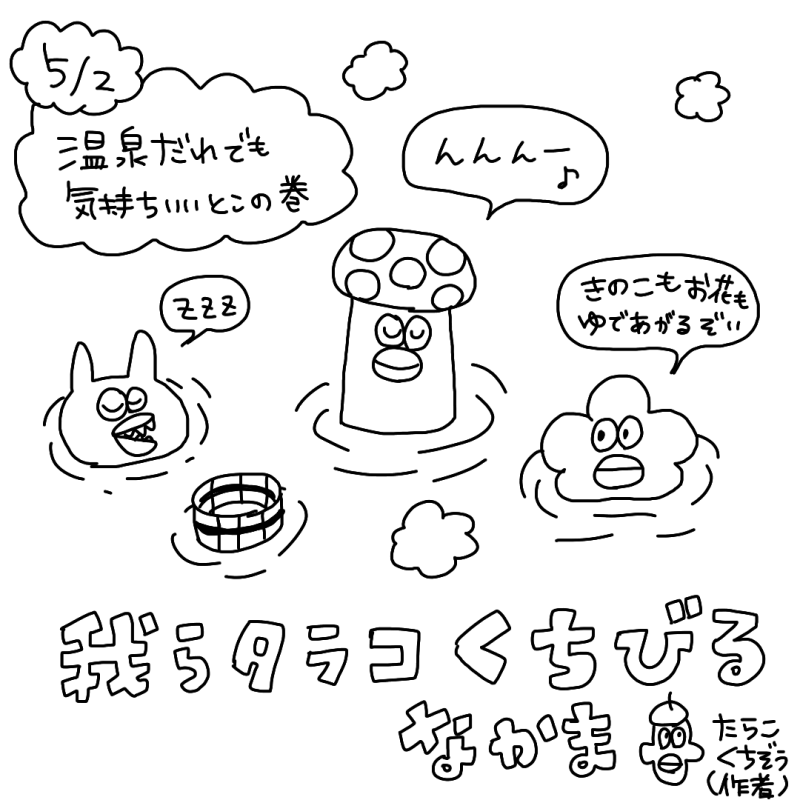 5/2
温泉だれでも
気持ちいいとこの巻
んんんー♪
zzz
きのこもお花も
ゆであがるぞぃ
我らタラコくちびる
なかま
たらこ
くちぞう
(作者)